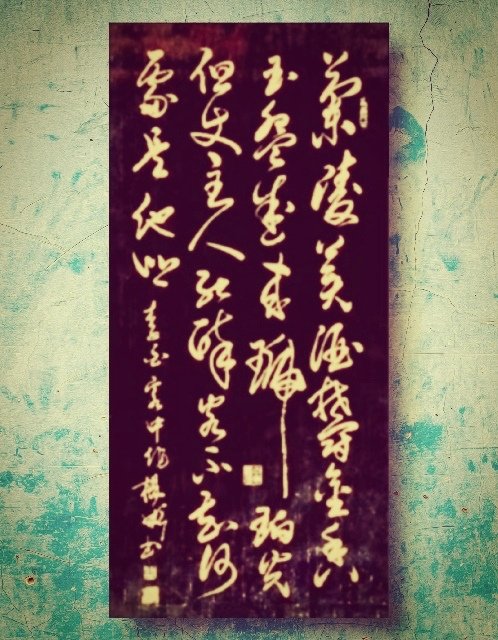 蘭陵美酒鬱金香
玉盌盛來琥珀光
但使主人能醉客不知何
處是他鄉 李白客中作 書